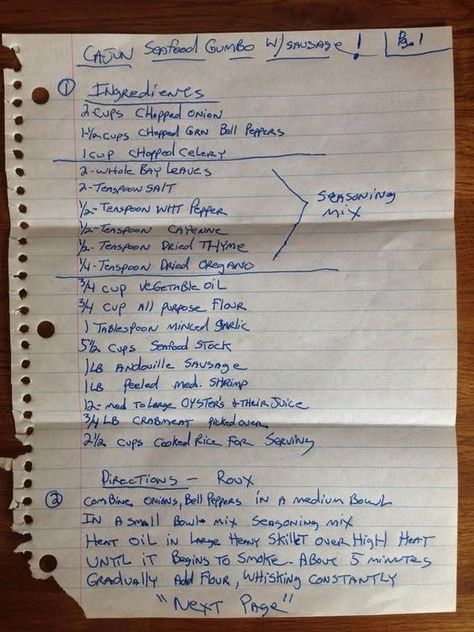 CAJUN SEAFOOD GUMBO W/SAUSAGE! Pg. 1
① INGREDIENTS
2 CUPS CHOPPED ONION
1-1/2 CUPS CHOPPED GRN BELL PEPPERS
1 CUP CHOPPED CELERY
2-WHOLE BAY LEAVES
2-TEASPOON SALT
1/2-TEASPOON WHT PEPPER
1/2-TEASPOON CAYENNE
1/2-TEASPOON DRIED THYME
1/4-TEASPOON DRIED OREGANO
SEASONING
MIX
3/4 CUP VEGETABLE OIL
3/4 CUP ALL PURPOSE FLOUR
1 TABLESPOON MINCED GARLIC
5 1/2 CUPS SEAFOOD STOCK
1 LB ANDOUILLE SAUSAGE
1 LB PEELED MED. SHRIMP
12-MED TO LARGE OYSTER'S & THEIR JUICE
3/4 LB CRABMEAT PICKED OVER
2 1/2 CUPS COOKED RICE FOR SERVING
DIRECTIONS - ROUX
② COMBINE ONIONS, BELL PEPPERS IN A MEDIUM BOWL
IN A SMALL BOWL MIX SEASONING MIX
HEAT OIL IN LARGE HEAVY SKILLET OVER HIGH HEAT
UNTIL IT BEGINS TO SMOKE. ABOUT 5 MINUTES
GRADUALLY ADD FLOUR, WHISKING CONSTANTLY
"NEXT PAGE"